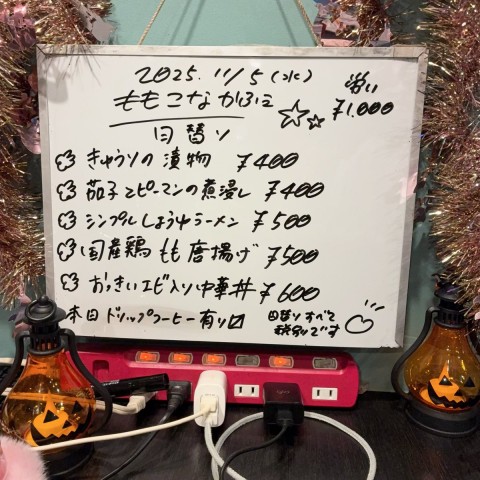 2025. 11/5 (水)
ももこなかふぇ
¥1.000
日替り
きゅうりの漬物 ¥400
茄子とピーマンの煮浸し ¥400
シンプルしょうゆラーメン ¥500
国産鶏もも唐揚げ ¥500
おっきいエビ入り中華丼 ¥600
本日ドリップコーヒー有り☑
日替りすべて
税別です